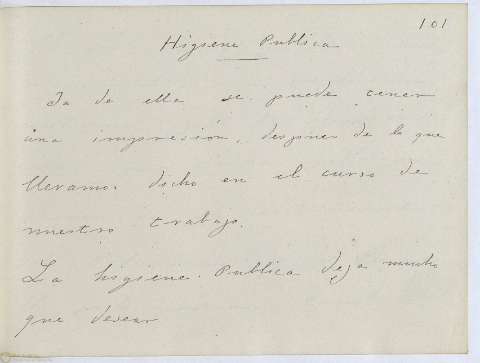 101
Higiene Publica
Ya de ella se puede tener
una impresión, despues de lo que
llevamos dicho en el curso de
nuestro trabajo.
La higiene Publica deja mucho
que desear